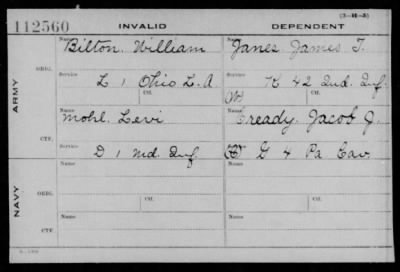 (3-H-5)
112560 INVALID DEPENDENT
Name Bilton, William Name Janes, James T.
ARMY
ORIG. Service L 1 Ohio L. A. Service K 42 Ind. Inf.
Ctf. Ctf.
Name Mohl, Levi Name Cready, Jacob J.
CTF. Service D 1 Md. Inf. G 4 Pa. Cav.
NAVY
Name Name
ORIG. Service Service
Ctf. Ctf.
Name Name
CTF. Service Service